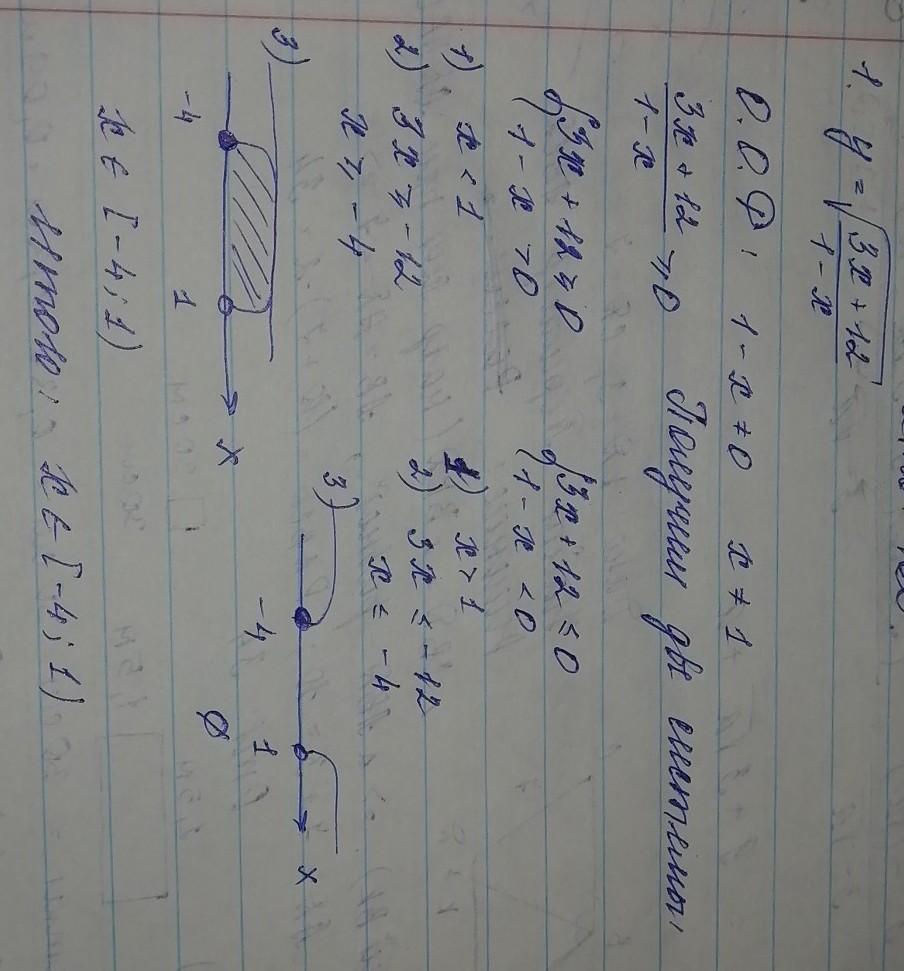 1. y = √((3x + 12)/(1 - x))
О.О.Ф: 1 - x ≠ 0 x ≠ 1
(3x + 12)/(1 - x) ≥ 0 Получим две системы:
{3x + 12 ≥ 0
{1 - x > 0
1) x < 1
2) 3x ≥ -12
x ≥ -4
3)
-4 1 x
x ∈ [-4; 1)
{3x + 12 ≤ 0
{1 - x < 0
1) x > 1
2) 3x ≤ -12
x ≤ -4
3)
-4 1 x
∅
Итого: x ∈ [-4; 1)